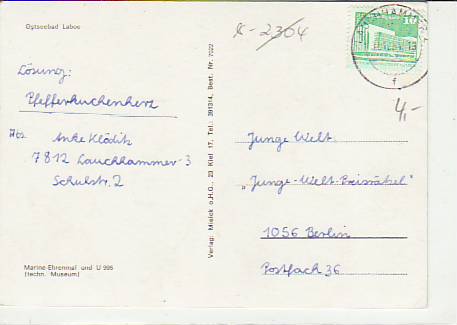 Ostseebad Laboe
Lösung:
Pfefferkuchenherz
Abs. Anke Klöditz
7812 Lauchhammer-3
Schulstr. 2
Marine-Ehrenmal und U 995
(techn. Museum)
Verlag: Mielck o.H.G., 23 Kiel 17, Tel.: 391314, Best. Nr. 1022
2304
10
4,-
Junge Welt
„Junge-Welt-Preisrätsel"
1056 Berlin
Postfach 36